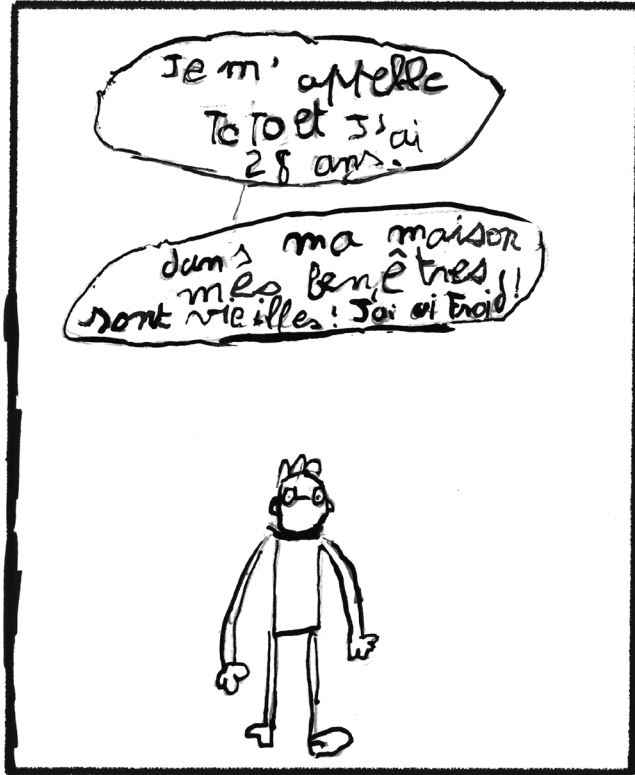 Je m'appelle
ToTo et J'ai
28 ans.
dans ma maison
mes fenêtres
sont vieilles! J'ai Froid!